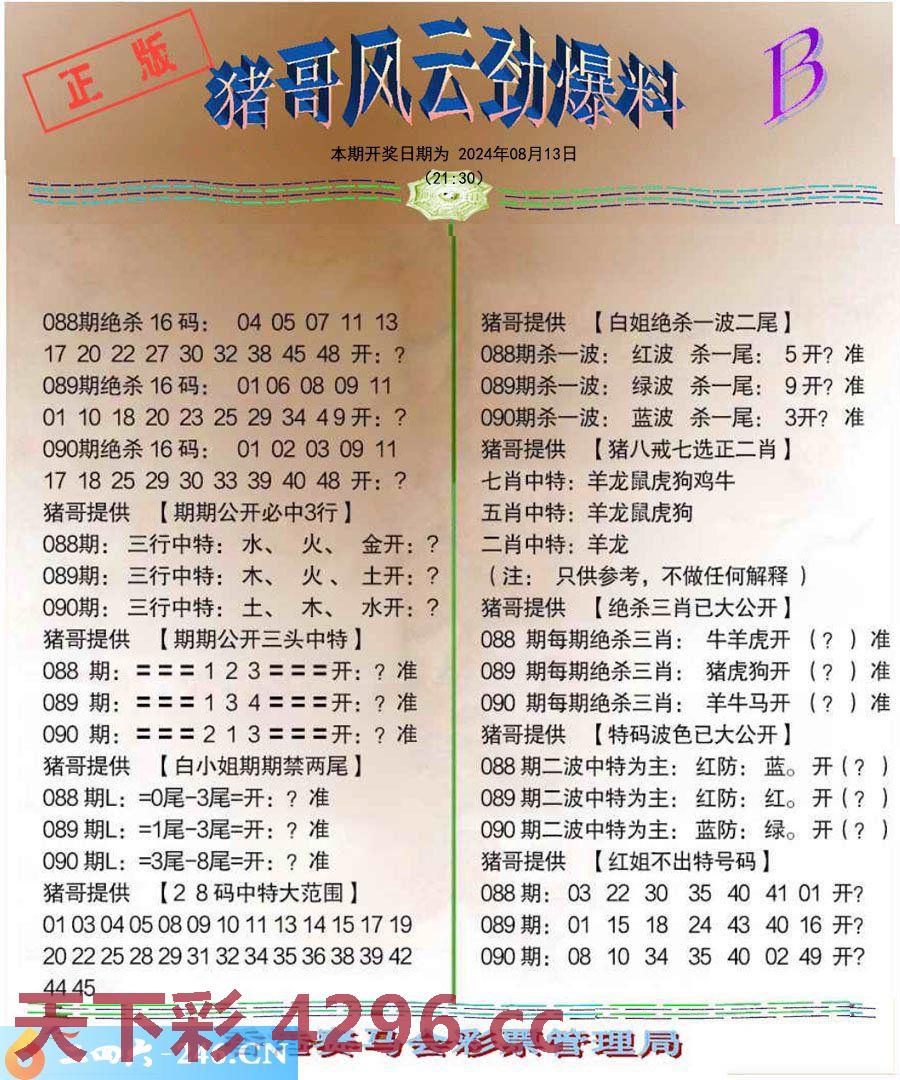 正版
猪哥风云劲爆料
B
本期开奖日期为 2024年08月13日
(21:30)
088期绝杀 16 码： 04 05 07 11 13
17 20 22 27 30 32 38 45 48 开：?
089期绝杀 16 码： 01 06 08 09 11
01 10 18 20 23 25 29 34 49 开：?
090期绝杀 16 码： 01 02 03 09 11
17 18 25 29 30 33 39 40 48 开：?
猪哥提供 【期期公开必中3行】
088期： 三行中特： 水、 火、 金开：?
089期： 三行中特： 木、 火、 土开：?
090期： 三行中特： 土、 木、 水开：?
猪哥提供 【期期公开三头中特】
088 期：〓〓〓１２３〓〓〓开：? 准
089 期：〓〓〓１３４〓〓〓开：? 准
090 期：〓〓〓２１３〓〓〓开：? 准
猪哥提供 【白小姐期期禁两尾】
088 期L：=0尾-3尾=开：? 准
089 期L：=1尾-3尾=开：? 准
090 期L：=3尾-8尾=开：? 准
猪哥提供 【２８码中特大范围】
01 03 04 05 08 09 10 11 13 14 15 17 19
20 22 25 28 29 31 32 34 35 36 38 39 42
44 45
猪哥提供 【白姐绝杀一波二尾】
088期杀一波： 红波 杀一尾： 5 开? 准
089期杀一波： 绿波 杀一尾： 9 开? 准
090期杀一波： 蓝波 杀一尾： 3开? 准
猪哥提供 【猪八戒七选正二肖】
七肖中特：羊龙鼠虎狗鸡牛
五肖中特：羊龙鼠虎狗
二肖中特：羊龙
（注： 只供参考，不做任何解释 ）
猪哥提供 【绝杀三肖已大公开】
088 期每期绝杀三肖： 牛羊虎开 （? ）准
089 期每期绝杀三肖： 猪虎狗开 （? ）准
090 期每期绝杀三肖： 羊牛马开 （? ）准
猪哥提供 【特码波色已大公开】
088 期二波中特为主： 红防： 蓝。 开（? ）
089 期二波中特为主： 红防： 红。 开（? ）
090 期二波中特为主： 蓝防： 绿。 开（? ）
猪哥提供 【红姐不出特号码】
088 期： 03 22 30 35 40 41 01 开?
089 期： 01 15 18 24 43 40 16 开?
090 期： 08 10 34 35 40 02 49 开?
天下彩 4296.cc
二四六-246.CN
马会彩票管理局